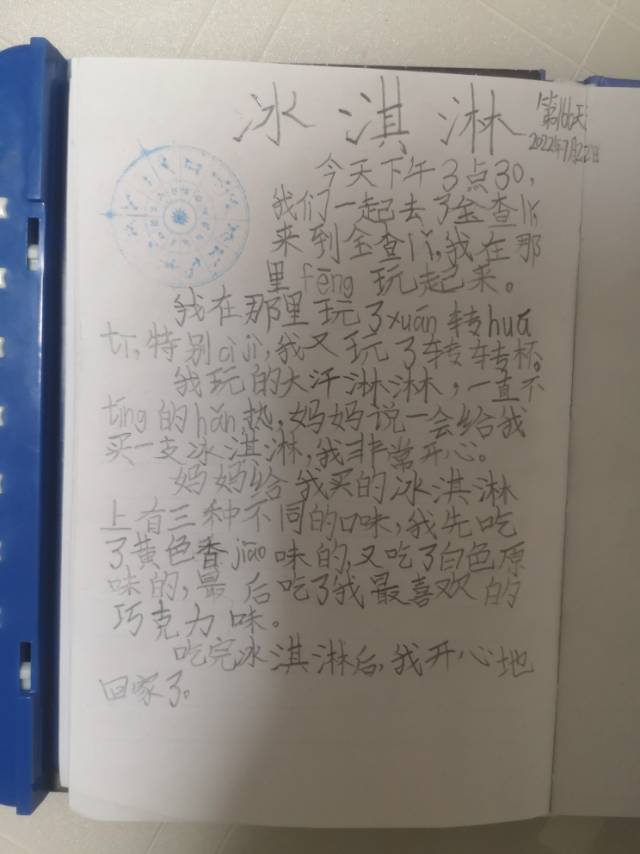 冰淇淋
第166天
2022年7月22日
今天下午3点30,
我们一起去了金查lǐ,
来到金查lǐ,我在那
里fēng玩起来。
我在那里玩了xuán转huá
tī,特别cì jī,我又玩了转转杯。
我玩的大汗淋淋,一直不
tíng的hǎn热,妈妈说一会给我
买一支冰淇淋,我非常开心。
妈妈给我买的冰淇淋
上有三种不同的口味,我先吃
了黄色香jiāo味的,又吃了白色原
味的,最后吃了我最喜欢的
巧克力味。
吃完冰淇淋后,我开心地
回家了。